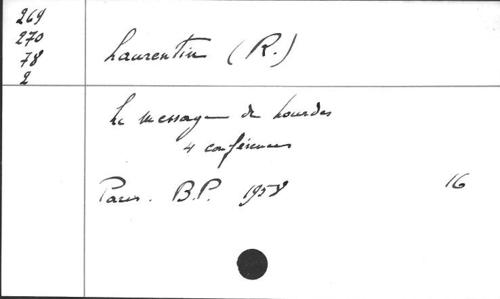 269
270
78
2
Laurentin (R.)
Le message de Lourdes
4 conférences
Paris. B.P. 1958 16